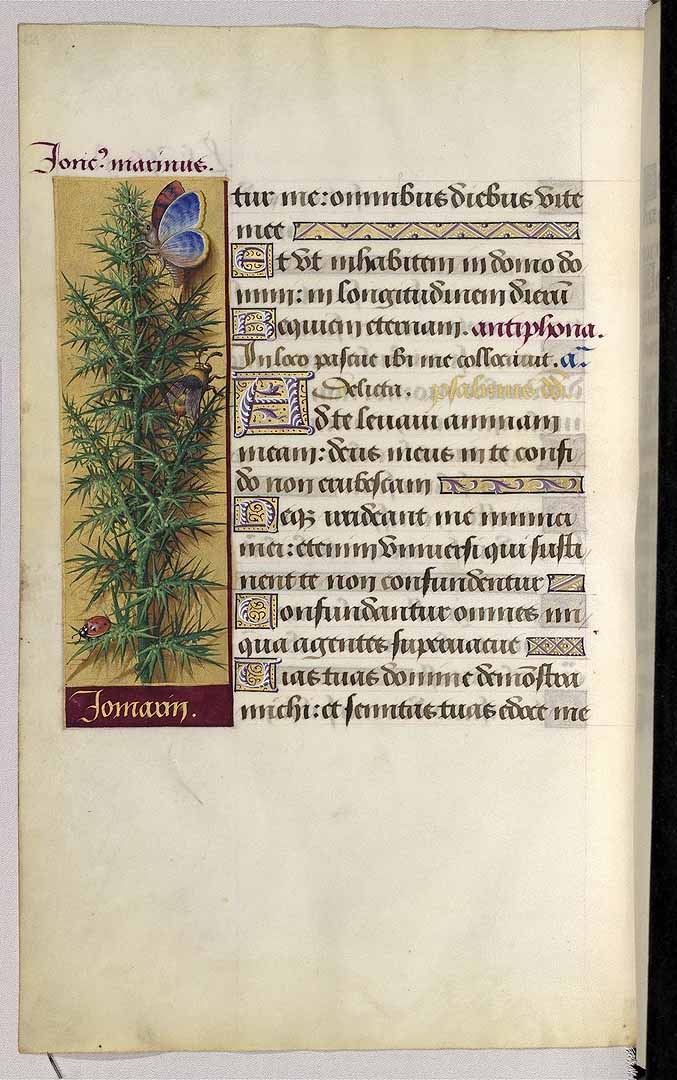 Jonc⁹ marinus.
tur me: omnibus diebus vite
mee
Et vt inhabitem in domo do
mini: in longitudinem dierū
Requiem eternam. antiphona.
In loco pascue ibi me collocauit. añ
Delicta. psalmus dd.
Ad te leuaui animam
meam: deus meus in te confi
do non erubescam
Neqꝫ irrideant me inimici
mei: etenim vniuersi qui susti
nent te non confundentur
Confundantur omnes ini
qua agentes superuacue
Uias tuas domine demōstra
michi: et semitas tuas edoce me
Jomarin.